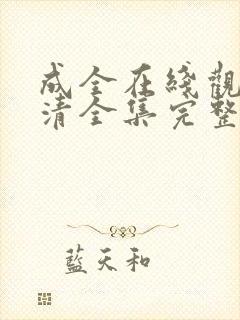 成全在綫觀
清全集完整
藍天和